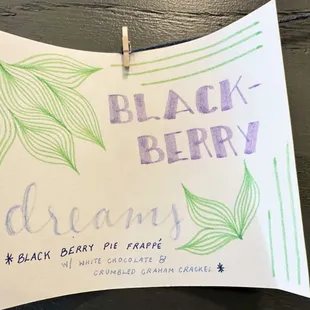 BLACK-
BERRY
dreams
* BLACK BERRY PIE FRAPPÉ
W/ WHITE CHOCOLATE &
CRUMBLED GRAHAM CRACKEL *